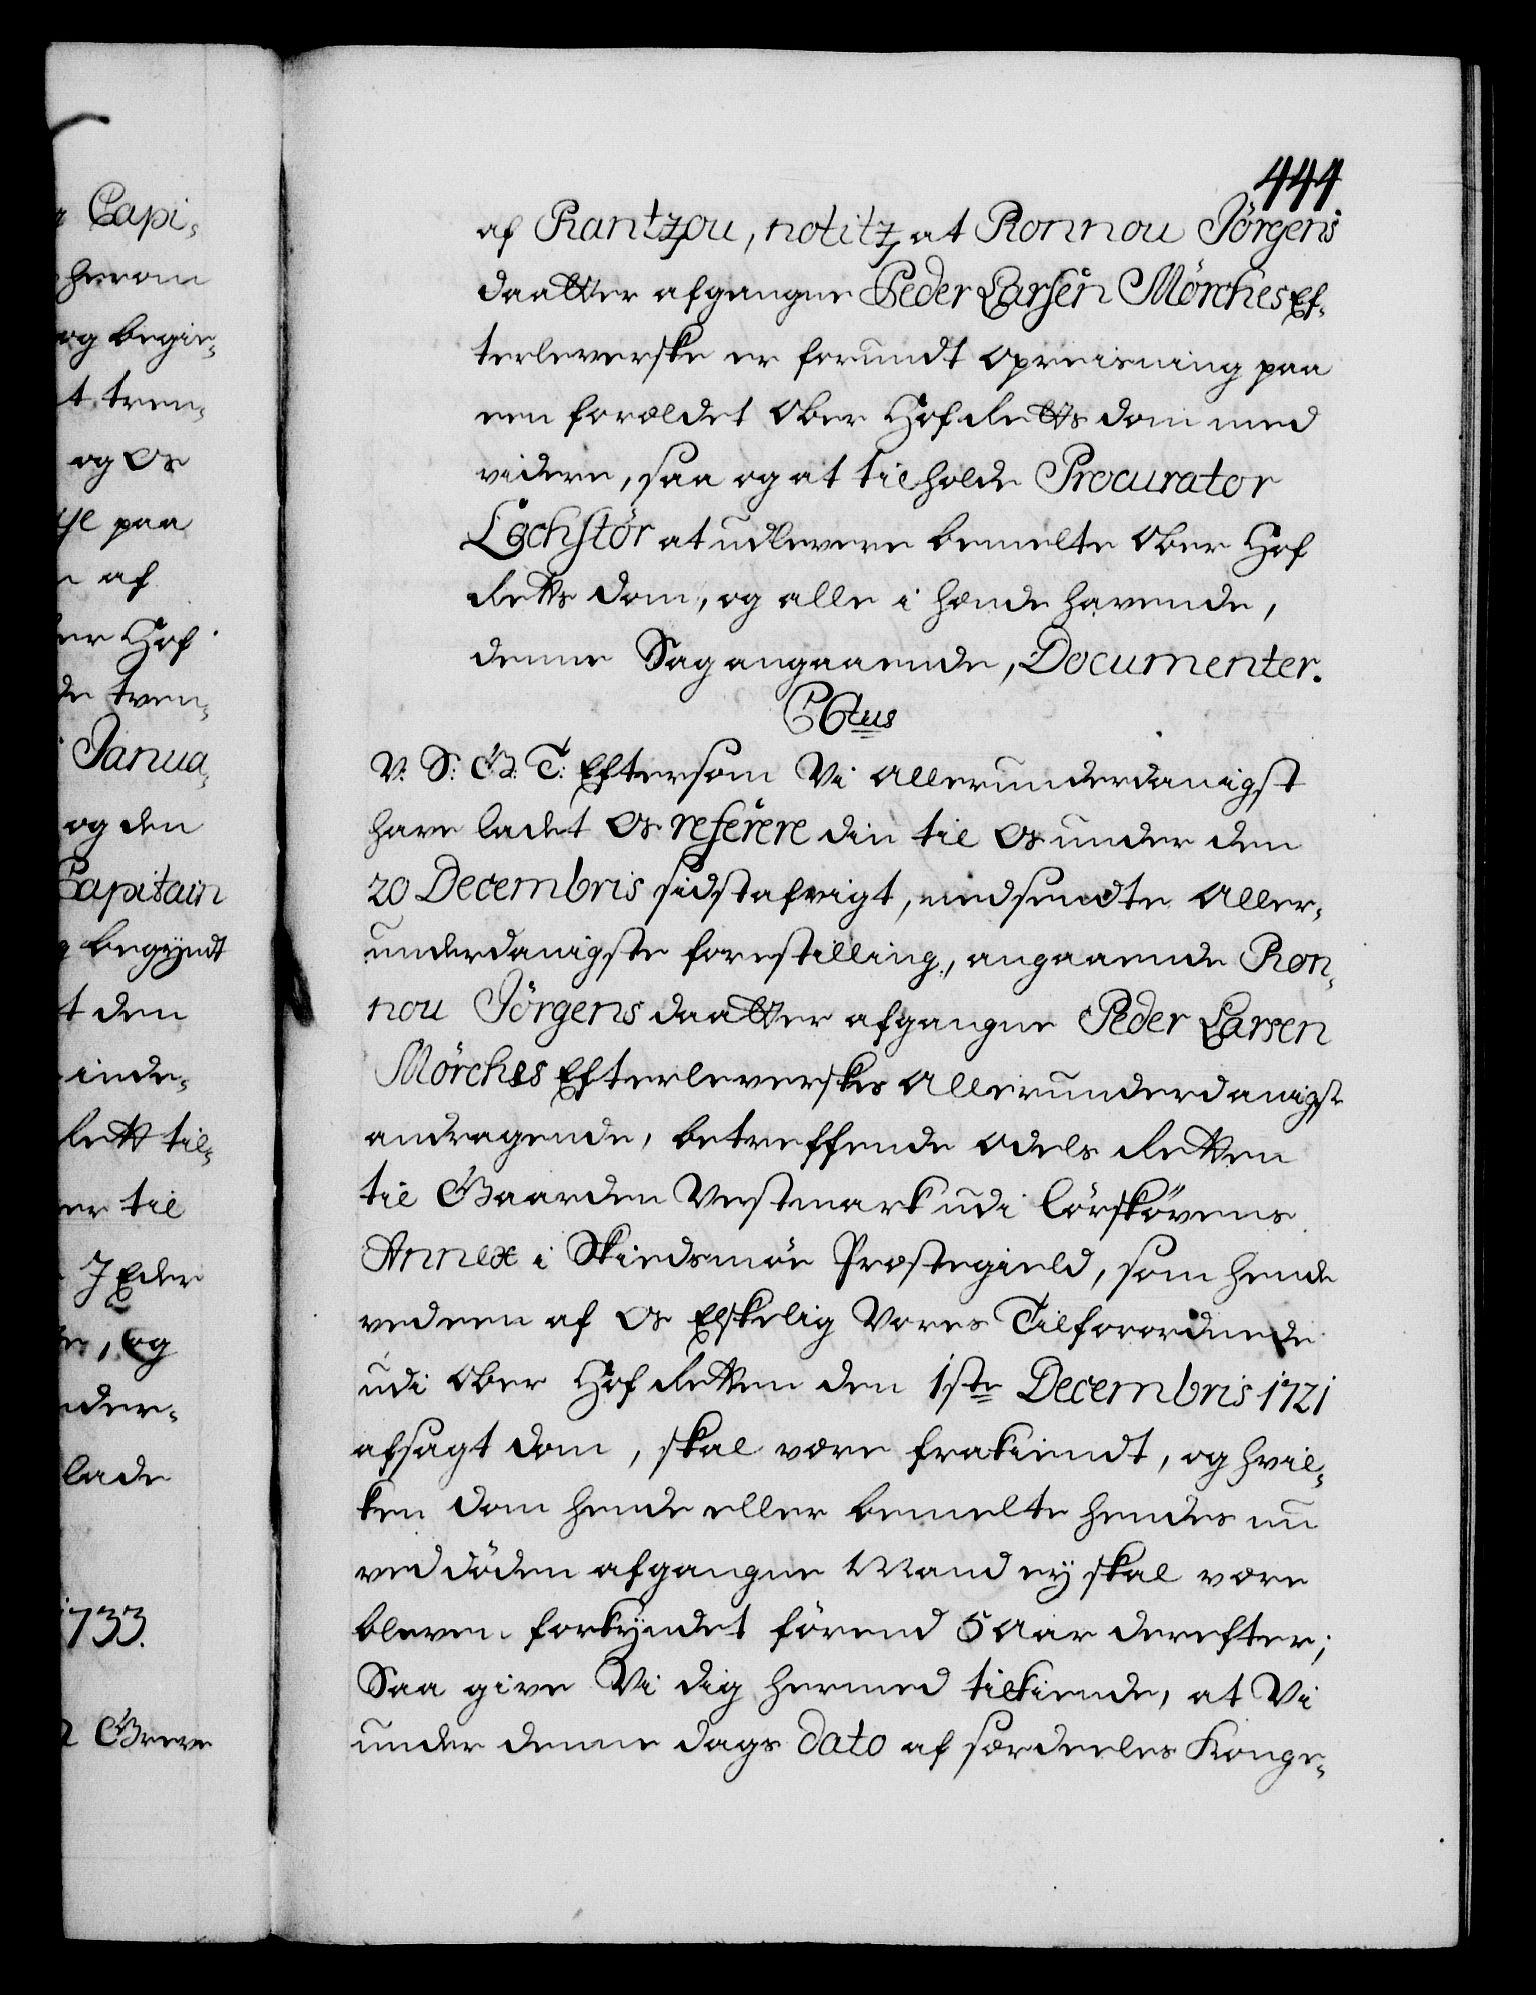 444
af Rantzou, notitz, at Ronnou Jörgens
daatter afgangne Peder Larsen Mörches Ef-
terleverske er forundt opreisning paa
een forældet Ober Hof Retts dom med
videre, saa og at tilholde Procurator
Lochstör at udlevere bemelte Ober Hof
Retts dom, og alle i hænde havende,
denne Sag angaaende, Documenter.
CGtus
V. S: G: T: Eftersom Vi allerunderdanigst
have ladet Os referere din til Os under den
20 Decembris sidstafvigt, indsendte aller-
underdanigste forestilling, angaaende Ron-
nou Jörgens daatter afgangne Peder Larsen
Mörches Efterleverskes allerunderdanigst
andragende, betreffende Odels Retten
til Gaarden Vestmark udi Lörskövens
Annex i Skiedsmöe Præstegield, som hende
ved een af Os Elskelig Vores Tilforordnede
udi Ober Hof Retten den 1ste Decembris 1721
afsagt dom, skal være frakiendt, og hvil-
ken dom hende eller bemelte hendes nu
ved döden afgangne Mand ey skal være
bleven forkyndet förend 5 Aar derefter;
Saa give Vi dig hermed tilkiende, at Vi
under denne dags dato af særdeeles Konge-
Capi-
herom
og begie-
t tren-
og Os
paa
af
Hof
tren-
Janua-
og den
Capitain
begyndt
t den
inde-
Rett til-
er til
J Eder
, og
nder-
lade
1733.
Greve